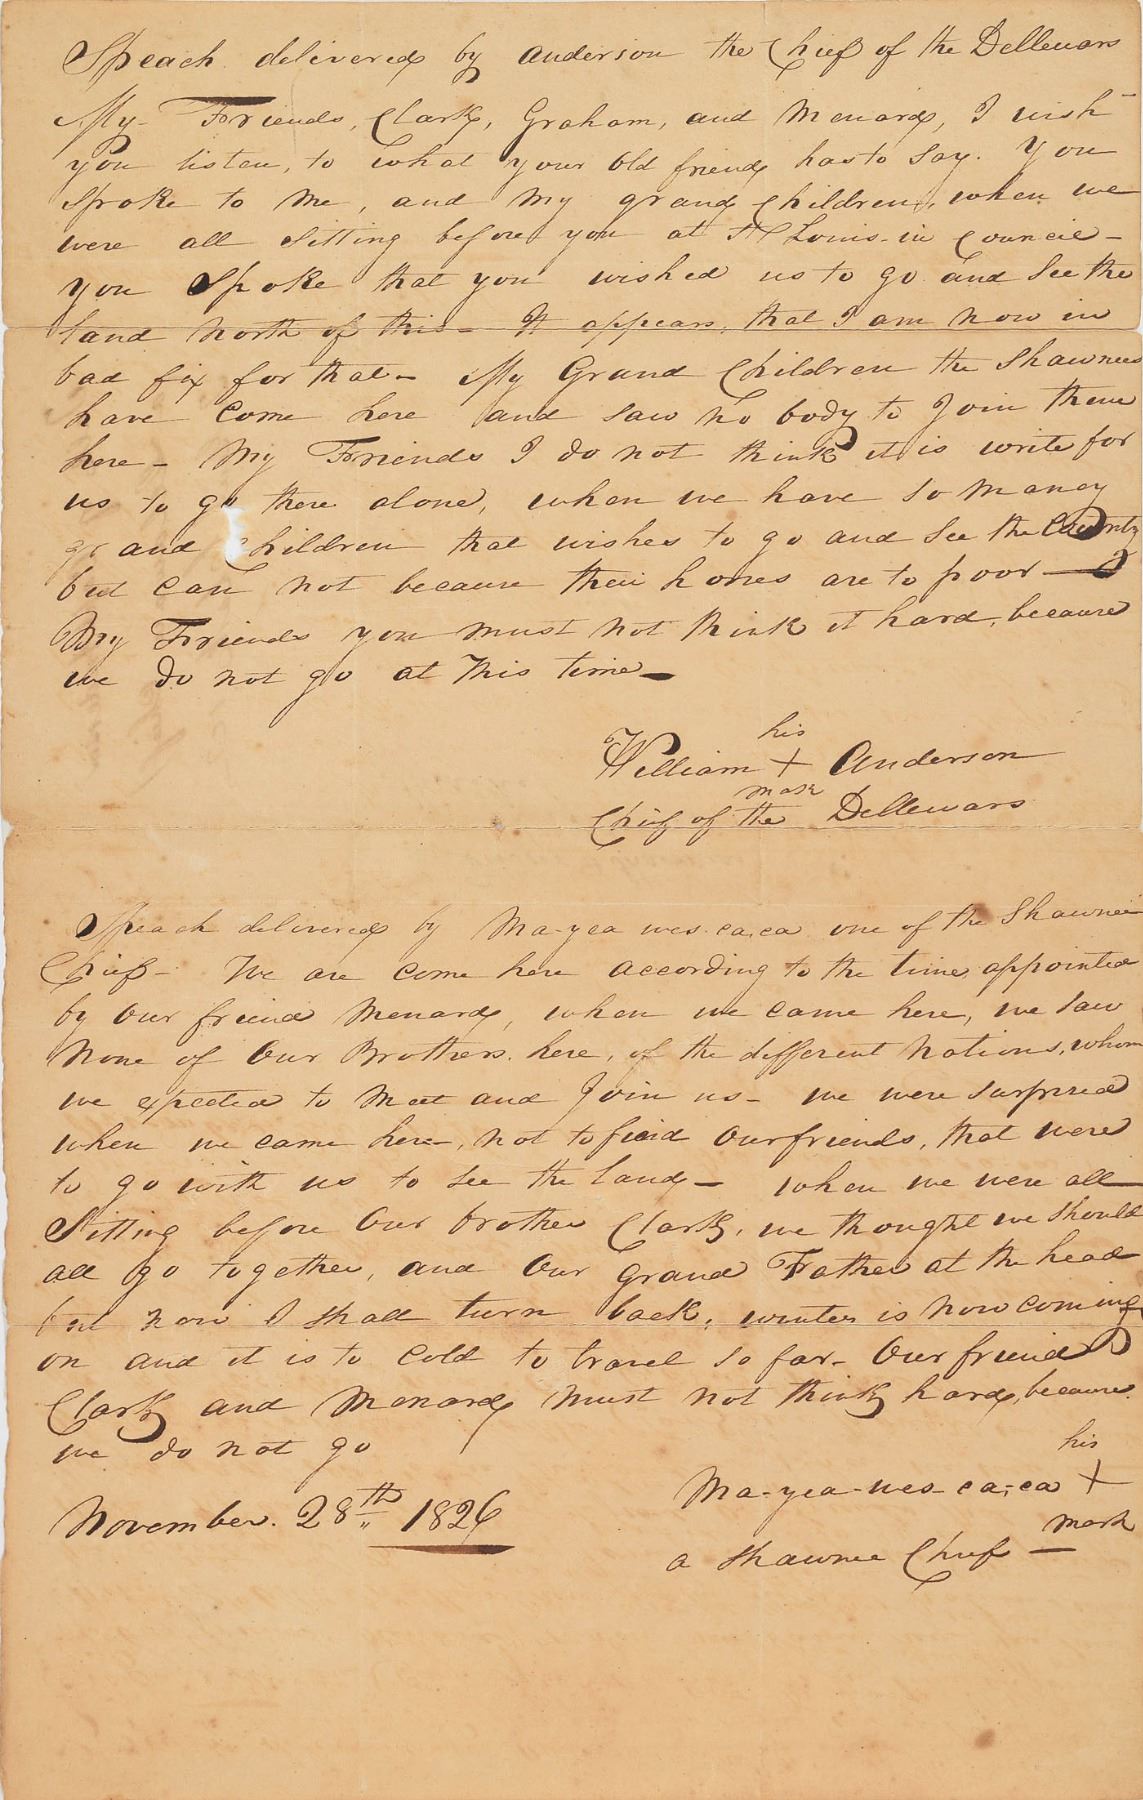 Speach delivered by Anderson the Chief of the Dellewars
My Friends, Clark, Graham, and Menard, I wish
you listen, to what your old friend has to say. You
spoke to me, and my grand Children, when we
were all sitting before you at St Louis in Council -
you spoke that you wished us to go and see the
land North of this - It appears, that I am now in
bad fix for that - My Grand Children the Shawnees
have come here and saw no body to Join them
here - My Friends I do not think it is write for
us to go there alone, when we have so maney
grand Children that wishes to go and see the Country
but can not because their horses are to poor -
My Friends you must not think it hard, because
we do not go at this time -
his
William + Anderson
mark
Chief of the Dellewars
Speach delivered by Ma-yea-wes-ca-ca one of the Shawnee
Chief - We are come here according to the time appointed
by our friend Menard, when we came here, we saw
None of our Brothers here, of the different Nations, whom
we expected to meet and Join us - we were surprised
when we came here, not to find our friends, that were
to go with us to see the land - when we were all
sitting before our brother Clark, we thought we should
all go together, and our Grand Father at the head
but now I shall turn back, winter is now coming
on and it is to cold to travel so far - Our friend
Clark and Menard must not think hard, because
we do not go
his
Ma-yea-wes-ca-ca +
November. 28th 1826
mark
a Shawnee Chief